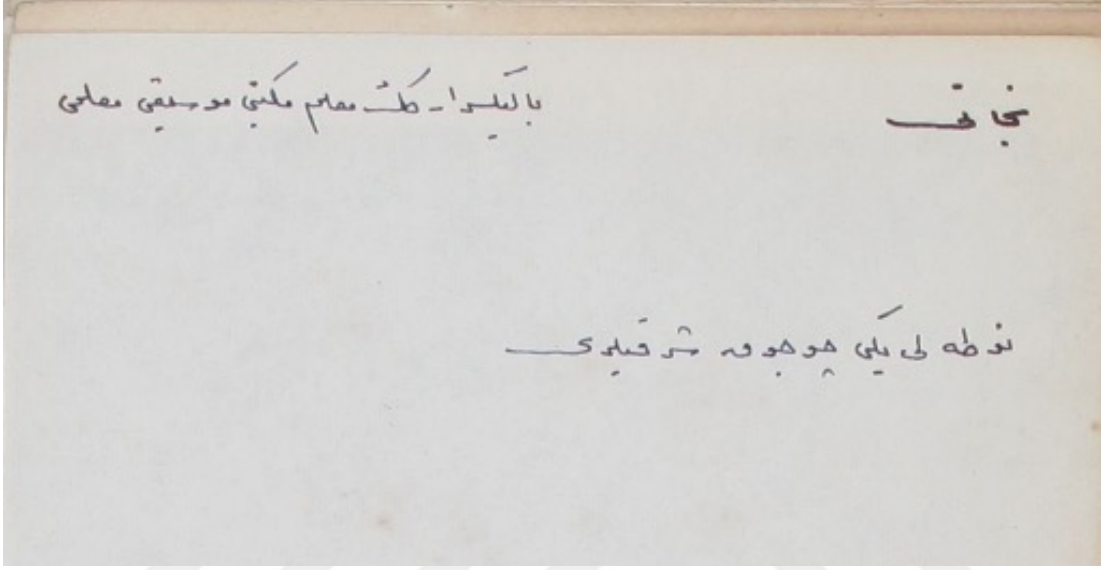 نجاتی
بالیکسرا- كڭ معلم مكتبی موسیقی معلمی
نوطه لی یكی چوجوق شرقیلری